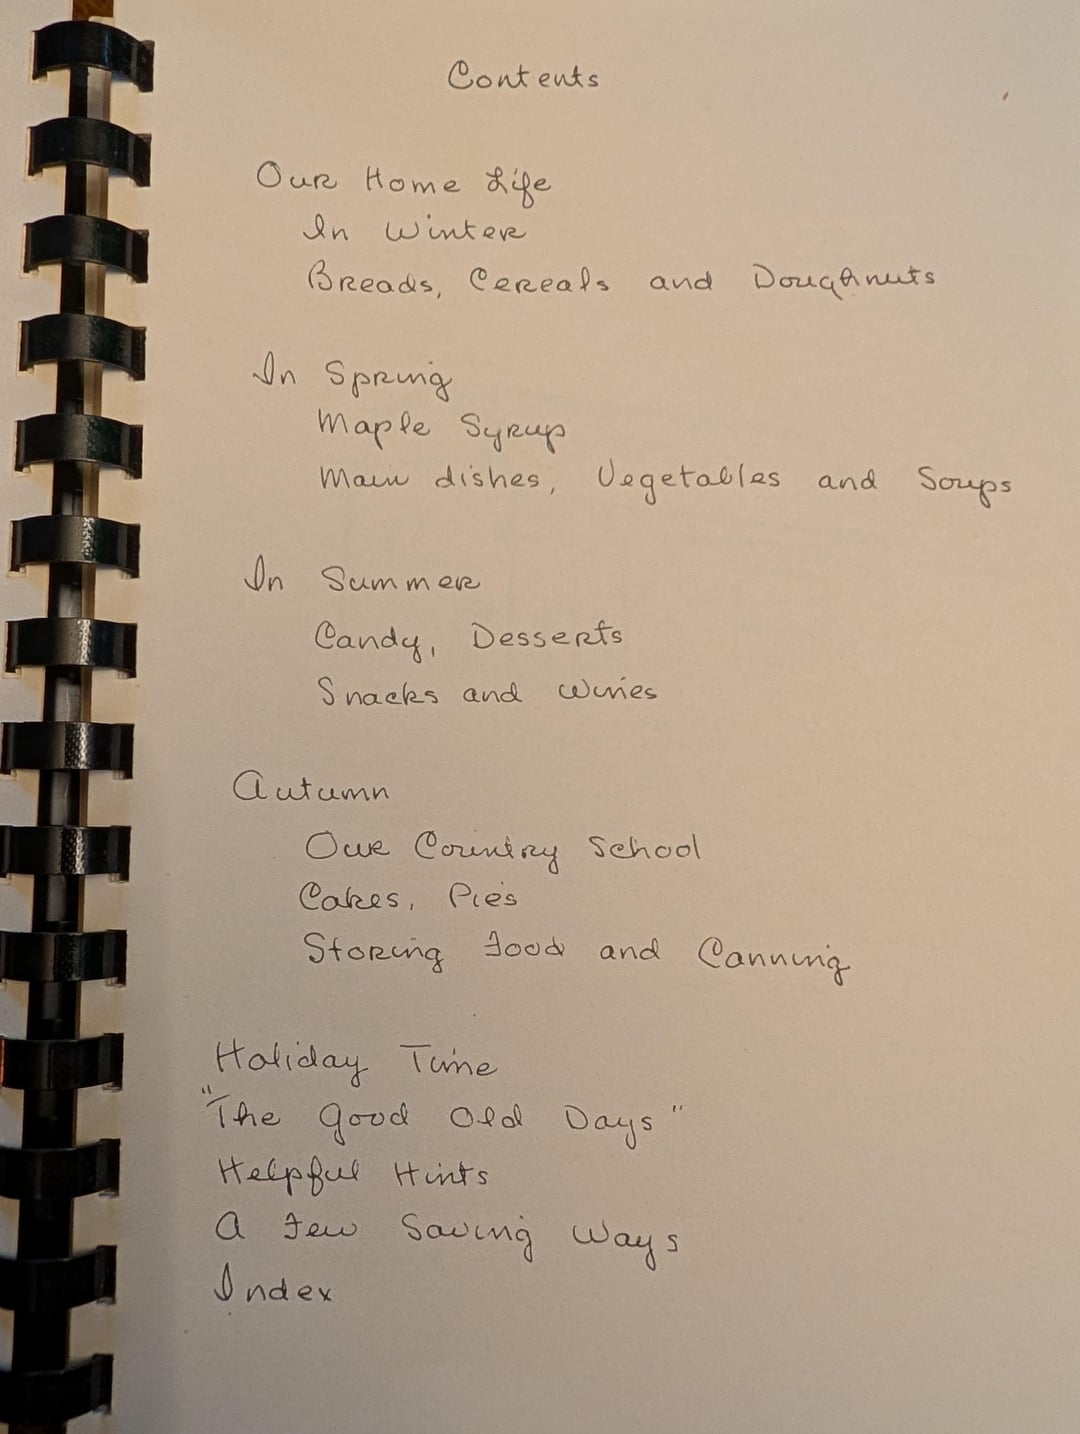 Contents
Our Home Life
In Winter
Breads, Cereals and Doughnuts
In Spring
Maple Syrup
Main dishes, Vegetables and Soups
In Summer
Candy, Desserts
Snacks and Wines
Autumn
Our Country School
Cakes, Pies
Storing Food and Canning
Holiday Time
"The Good Old Days"
Helpful Hints
A Few Saving Ways
Index